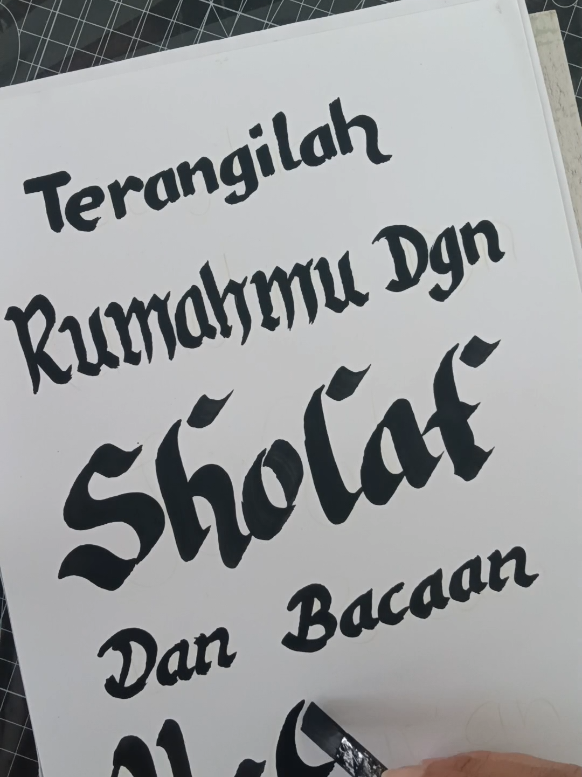 Terangilah
Rumahmu Dgn
Sholat
Dan Bacaan